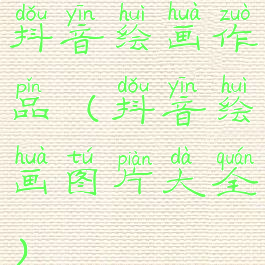 dǒu yīn huì huà zuò
抖音绘画作
pǐn dǒu yīn huì
品（抖音绘
huà tú piàn dà quán
画图片大全
）